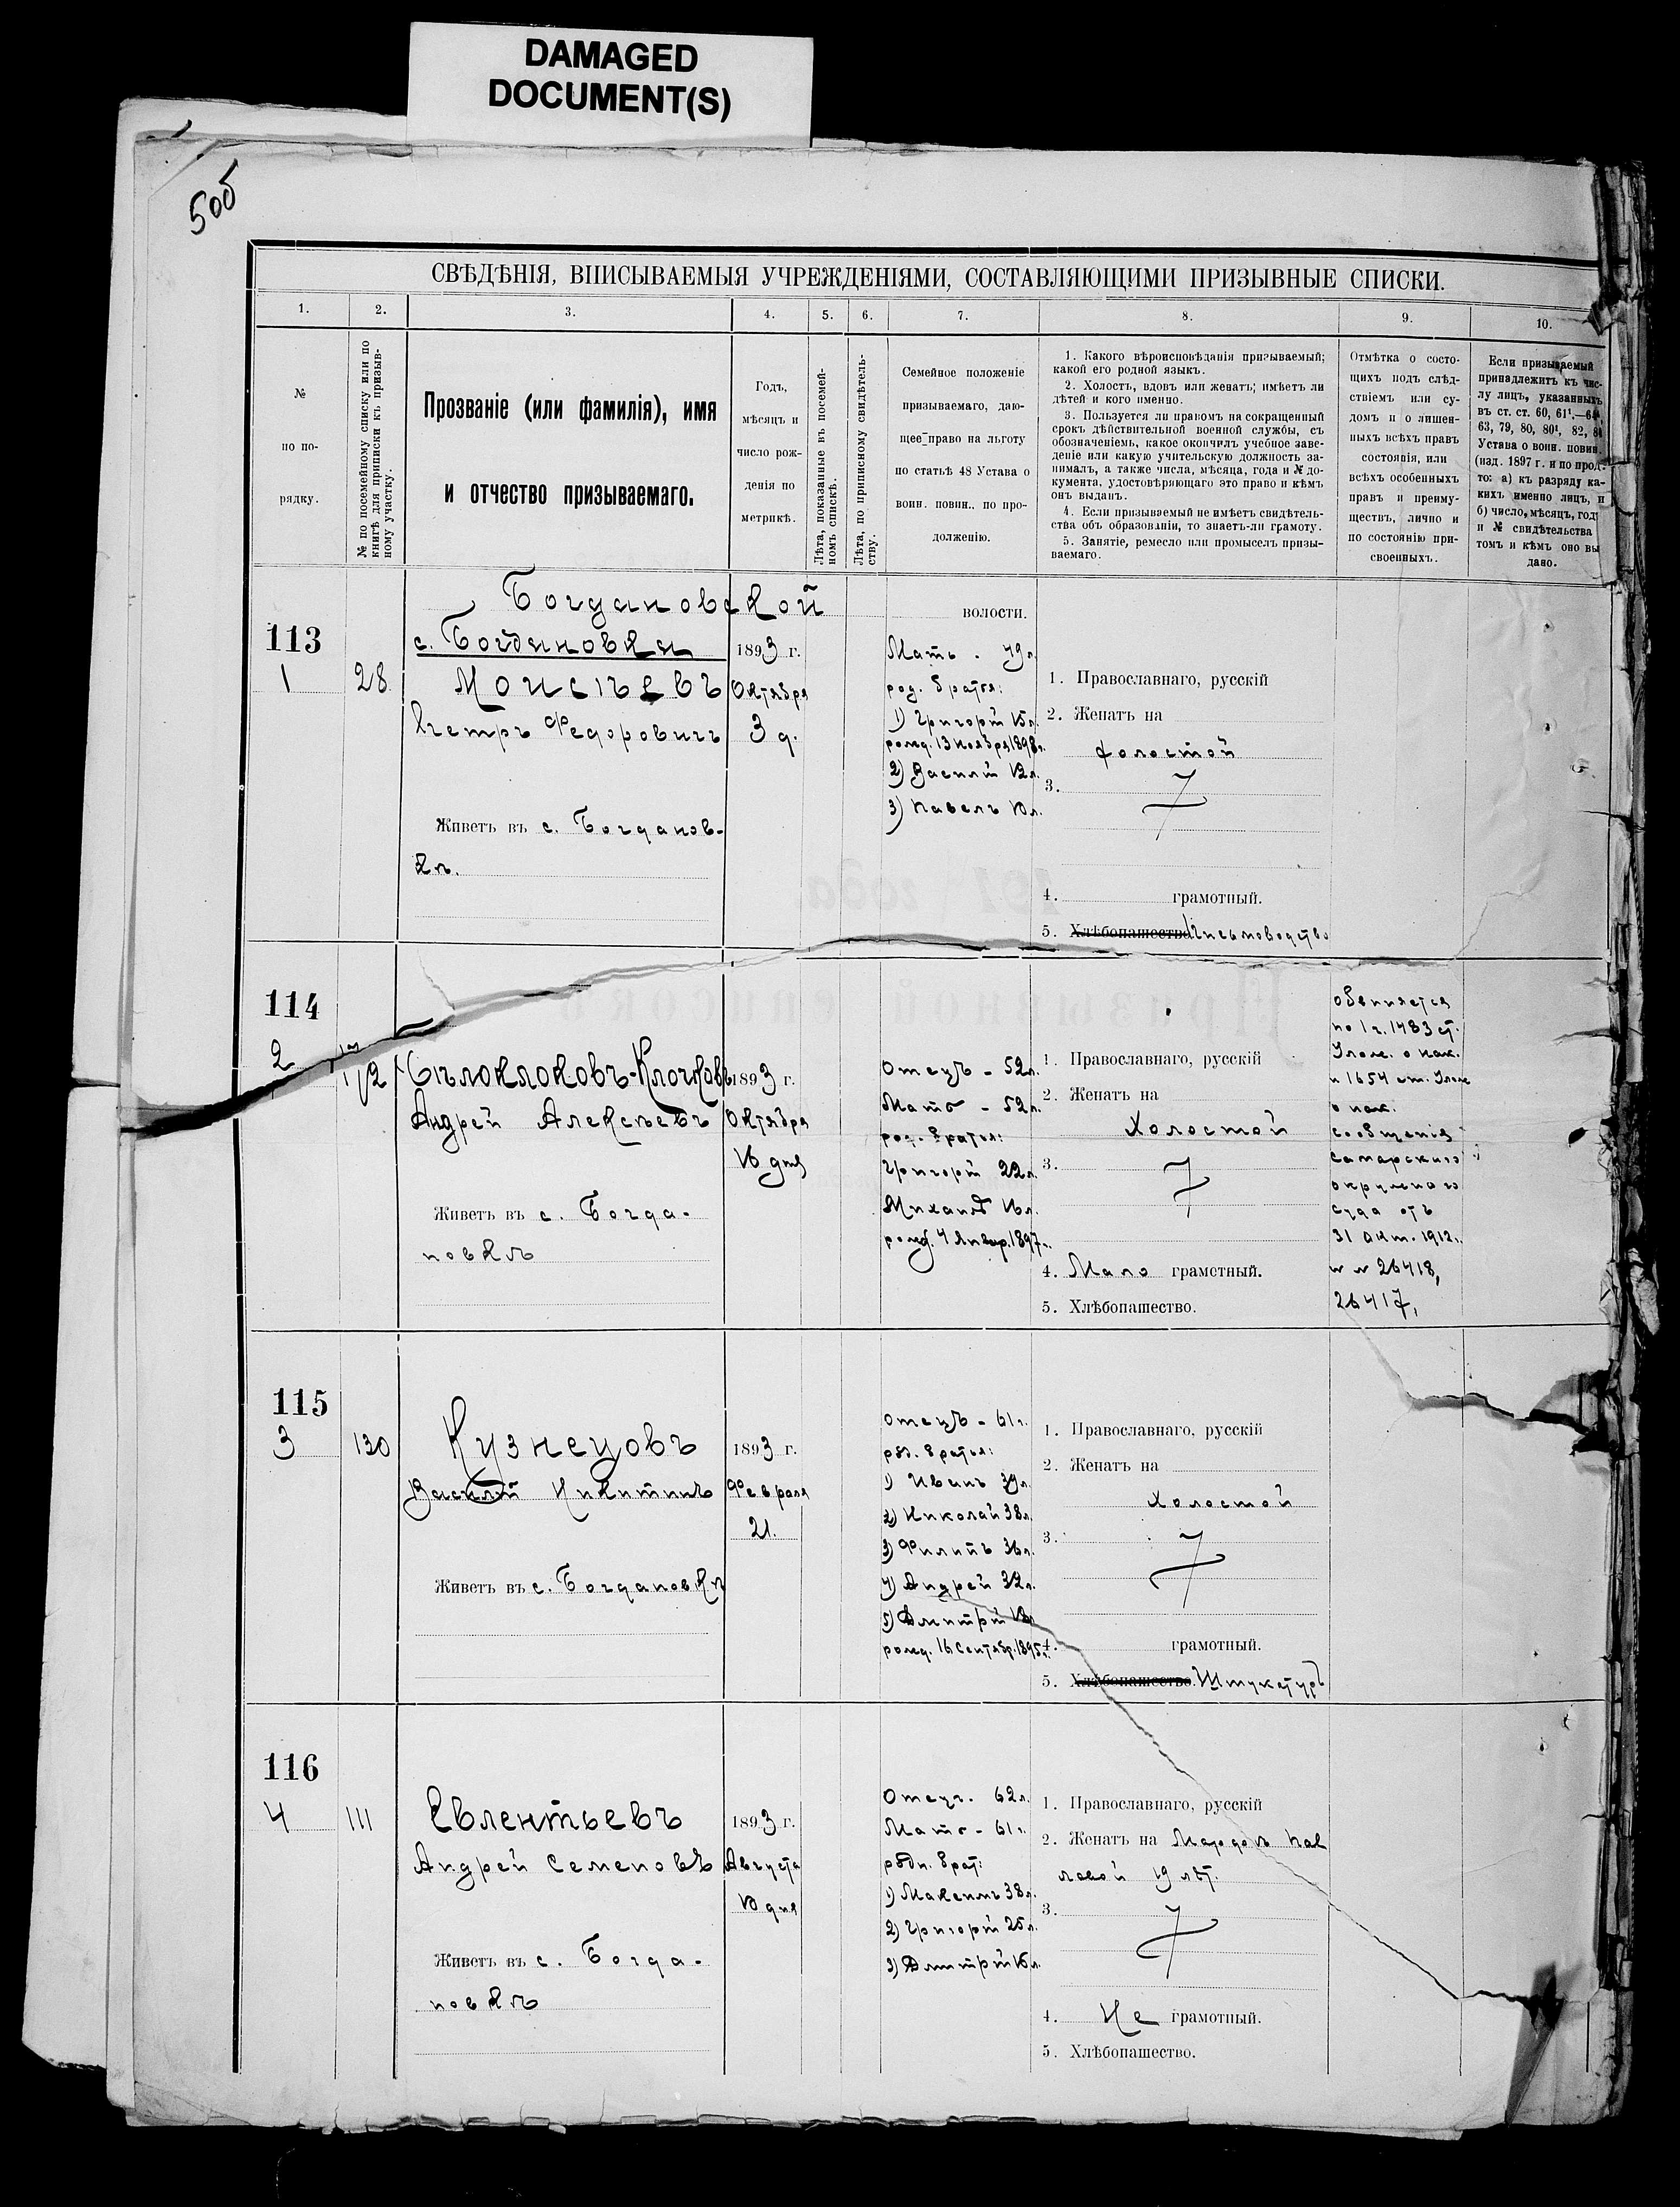 DAMAGED
DOCUMENT(S)
50об
СВѢДѢНІЯ, ВПИСЫВАЕМЫЯ УЧРЕЖДЕНІЯМИ, СОСТАВЛЯЮЩИМИ ПРИЗЫВНЫЕ СПИСКИ.
1. 2. 3. 4. 5. 6. 7. 8. 9. 10.
№
по по-
рядку.
№ по посемейному списку или по
книгѣ для приписки къ призыв-
ному участку.
Прозваніе (или фамилія), имя
и отчество призываемаго.
Годъ,
мѣсяцъ и
число рож-
денія по
метрикѣ.
Лѣта, показанные въ посемей-
номъ спискѣ.
Лѣта, по приписному свидѣтель-
ству.
Семейное положеніе
призываемаго, даю-
щее право на льготу
по статьѣ 48 Устава о
воин. повин.. по про-
долженію.
1. Какого вѣроисповѣданія призываемый;
какой его родной языкъ.
2. Холостъ, вдовъ или женатъ; имѣетъ ли
дѣтей и кого именно.
3. Пользуется ли правомъ на сокращенный
срокъ дѣйствительной военной службы, съ
обозначеніемъ, какое окончилъ учебное заве-
деніе или какую учительскую должность за-
нималъ, а также числа, мѣсяца, года и № до-
кумента, удостовѣряющаго это право и кѣмъ
онъ выданъ.
4. Если призываемый не имѣетъ свидѣтель-
ства объ образованіи, то знаетъ-ли грамоту.
5. Занятіе, ремесло или промыселъ призы-
ваемаго.
Отмѣтка о состо-
щихъ подъ слѣд-
ствіемъ или су-
домъ и о лишен-
ныхъ всѣхъ правъ
состоянія, или
всѣхъ особенныхъ
правъ и преиму-
ществъ, лично и
по состоянію при-
своенныхъ.
Если призываемый
принадлежитъ къ чис-
лу лицъ, указанныхъ
въ ст. ст. 60, 61¹.—64
63, 79, 80, 80¹, 82,
Устава о воин. повин.
(изд. 1897 г. и по прод.
то: а) къ разряду ка-
кихъ именно лицъ, и
б) число, мѣсяцъ, годъ
и № свидѣтельства
томъ и кѣмъ оно вы
дано.
Богдановской волости.
113
1
28
с. Богдановки
Моисѣевъ
Петръ Федоровичъ
Живетъ въ с. Богданов-
кѣ.
1893 г.
Октября
3 д.
Мать . 49 л.
род. братья:
1) Григорій 15 л.
рожд. 13 ноября 1898 г.
2) Василій 12 л.
3) Павелъ 10 л.
1. Православнаго, русскій
2. Женатъ на
холостой
3.
4. грамотный.
5. Хлѣбопашество Письмоводство
114
2
172
Бѣлоклоковъ-Клочковъ
Андрей Алексѣевъ
Живетъ въ с. Богда-
новкѣ
1893 г.
Октября
16 дня
Отецъ - 52 л.
Мать - 52 л.
род. братья:
Григорій 22 л.
Михаилъ 16 л.
рожд. 4 Январ. 1897 г.
1. Православнаго, русскій
2. Женатъ на
Холостой
3.
4. Мало грамотный.
5. Хлѣбопашество.
обвиняется
по 1 ч. 1483 ст.
Улож. о нак.
и 1654 ст. Улож
о нак.
сообщенія
Самарскаго
окружнаго
суда отъ
31 Окт. 1912 г.
№ № 26418,
26417,
115
3
130
Кузнецовъ
Василій Никитинъ
Живетъ въ с. Богдановкѣ
1893 г.
Февраля
21.
Отецъ - 61 г.
род. братья:
1) Иванъ 39 л.
2) Николай 38 л.
3) Филипъ 36 л.
4) Андрей 32 л.
5) Дмитрій
рожд. 16 Сентябр. 1895 г.
1. Православнаго, русскій
2. Женатъ на
Холостой
3.
4. грамотный.
5. Хлѣбопашество. Штукатуръ
116
4
111
Евлентьевъ
Андрей Семеновъ
Живетъ въ с. Богда-
новкѣ
1893 г.
Августа
10 дня
Отецъ. 62 л.
Мать - 61 г.
родн. брат:
1) Максимъ 38 л.
2) Григорій 25 л.
3) Дмитрій 16 л.
1. Православнаго, русскій
2. Женатъ на Пав
ловой 19 лѣт.
3.
4. Не грамотный.
5. Хлѣбопашество.